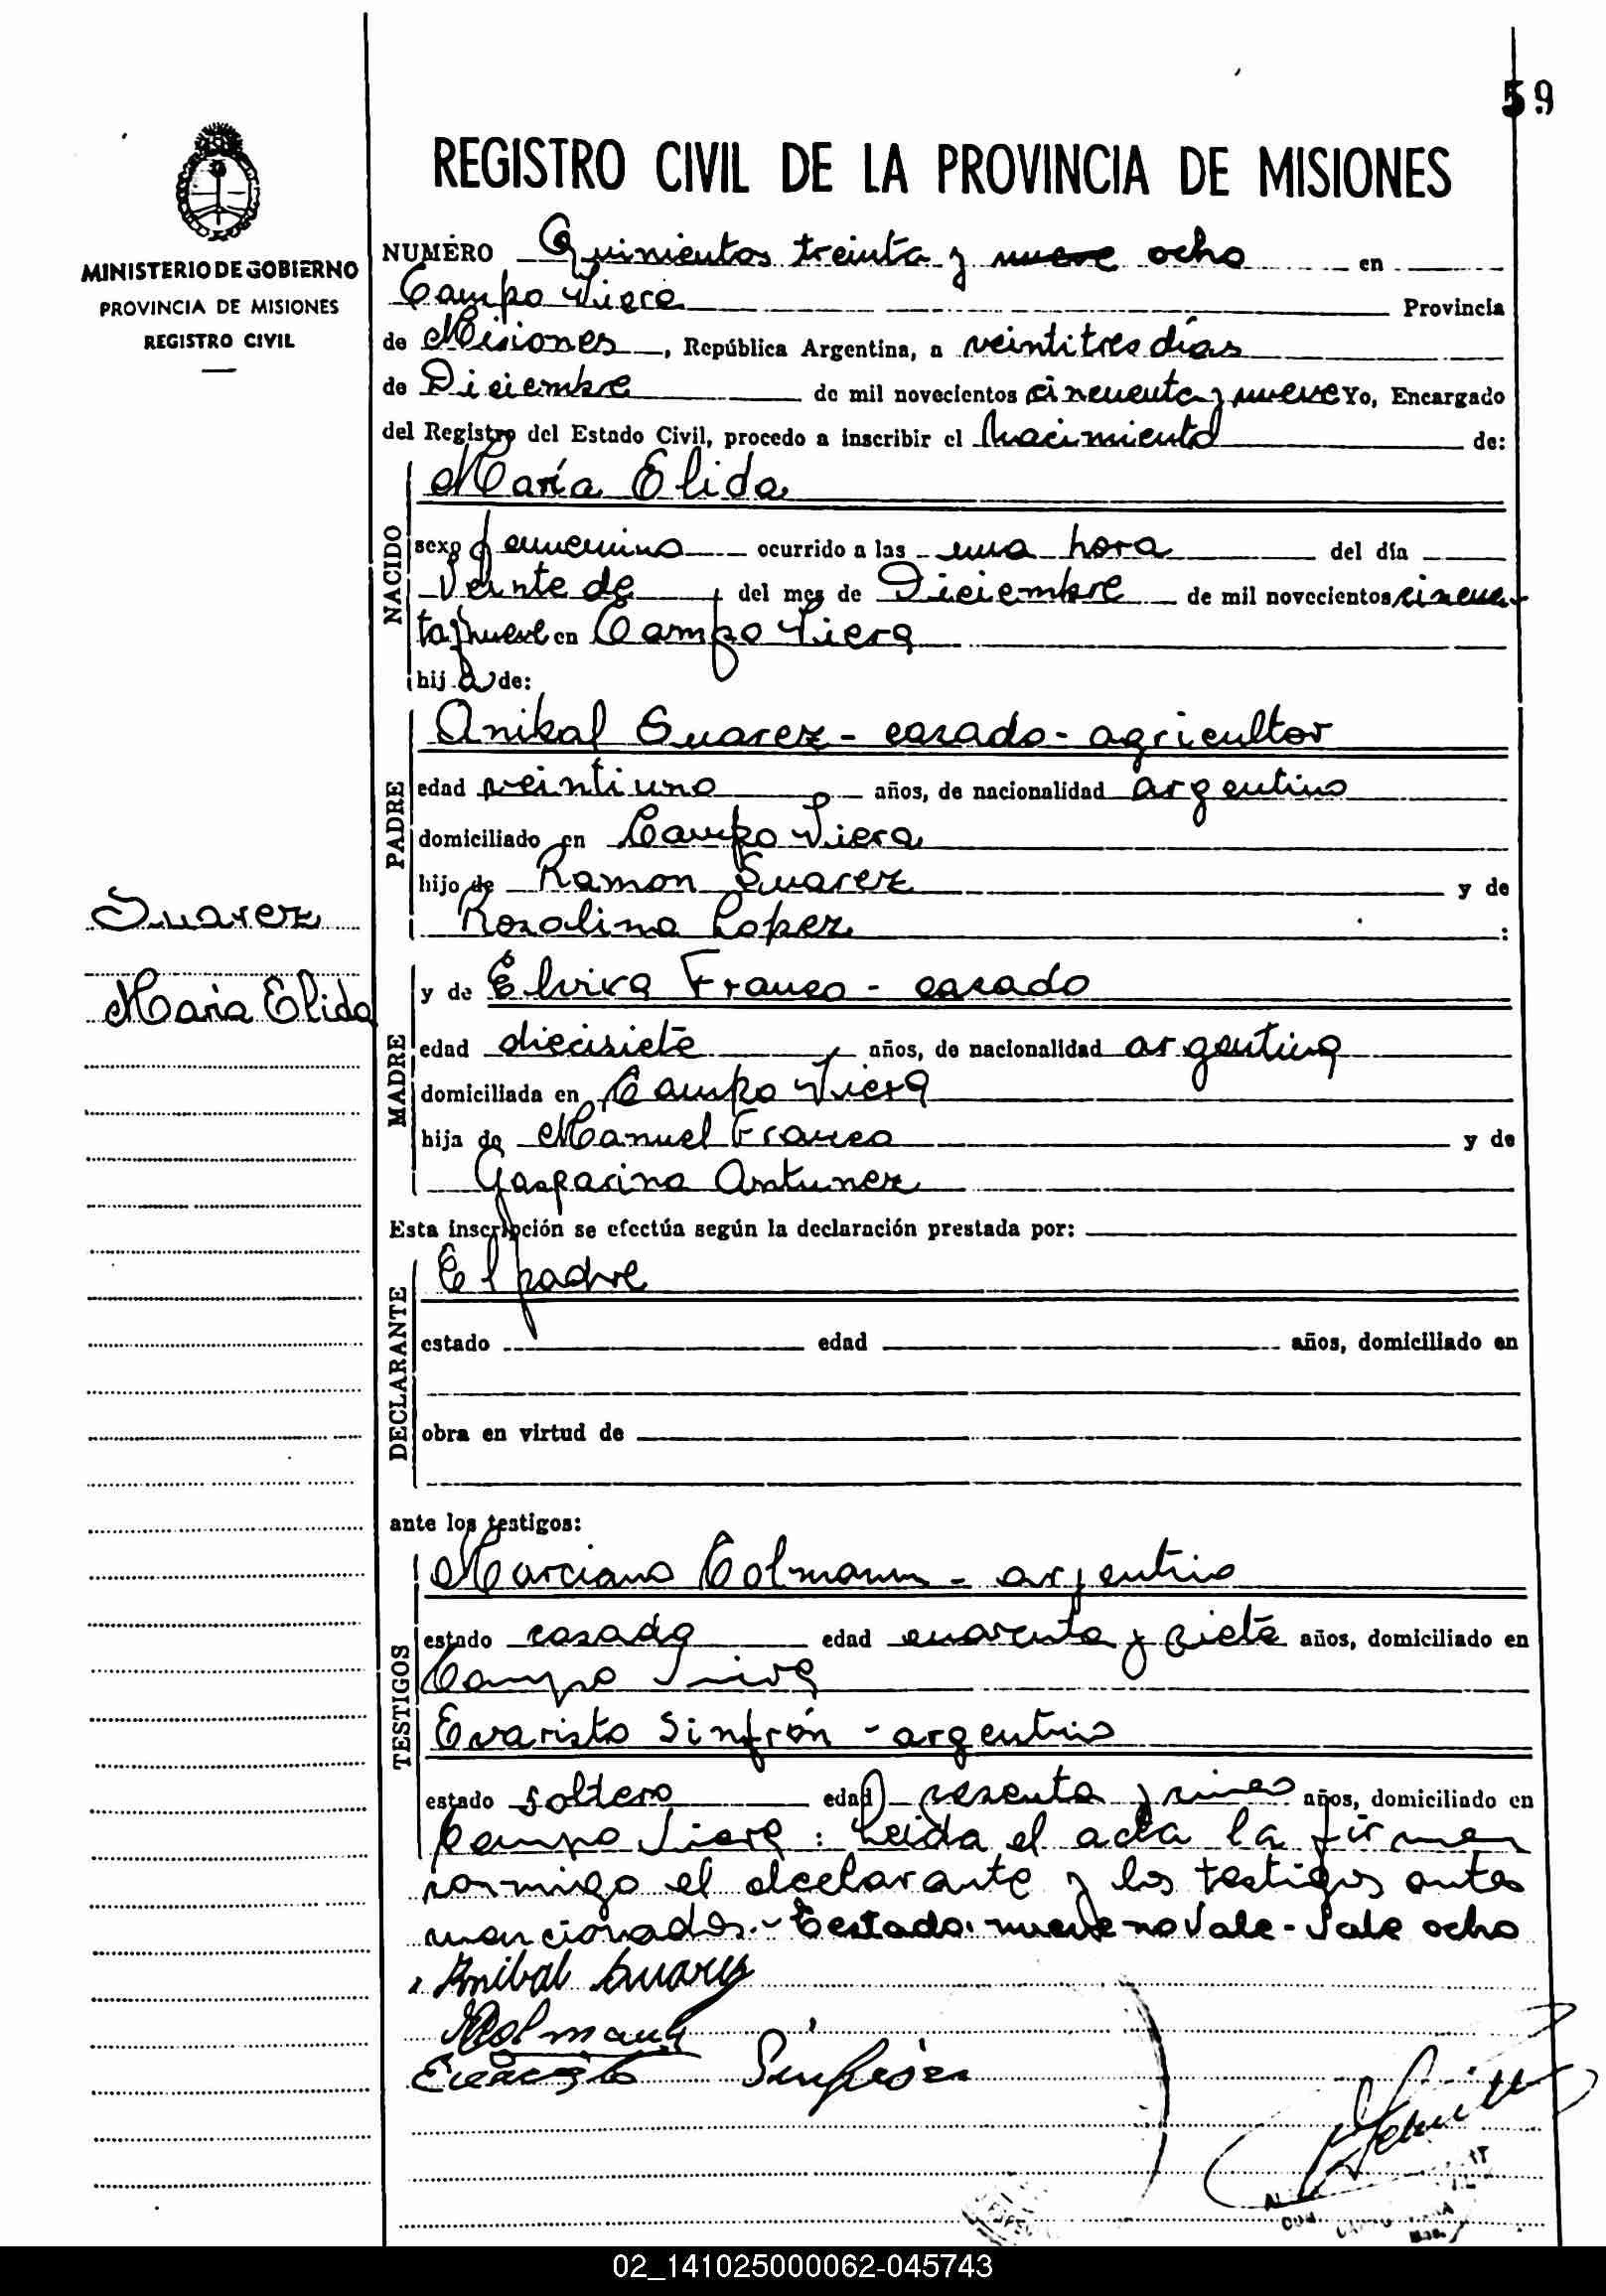 59
REGISTRO CIVIL DE LA PROVINCIA DE MISIONES
MINISTERIO DE GOBIERNO
PROVINCIA DE MISIONES
REGISTRO CIVIL
NUMERO Quinientos treinta y nueve ocho en
Campo Viera Provincia
de Misiones, República Argentina, a veintitres días
de Diciembre de mil novecientos cincuenta y nueve Yo, Encargado
del Registro del Estado Civil, procedo a inscribir el Nacimiento de:
NACIDO
María Elida
sexo femenino ocurrido a las una hora del día
Veinte de del mes de Diciembre de mil novecientos cincuen
ta y nueve en Campo Viera
hija de:
PADRE
Anibal Suarez - casado - agricultor
edad veintiuno años, de nacionalidad argentino
domiciliado en Campo Viera
hijo de Ramon Suarez y de
Rosalina Lopez :
Suarez
María Elida
MADRE
y de Elvira Franco - casada
edad diecisiete años, de nacionalidad argentina
domiciliada en Campo Viera
hija de Manuel Franco y de
Gasparina Antunez
Esta inscripción se efectúa según la declaración prestada por:
DECLARANTE
El padre
estado edad años, domiciliado en
obra en virtud de
ante los testigos:
TESTIGOS
Marciano Colmann - argentino
estado casado edad cuarenta y siete años, domiciliado en
Campo Viera
Evaristo Sinfrón - argentino
estado soltero edad sesenta y cinco años, domiciliado en
Campo Viera : Leida el acta la firman
conmigo el declarante y los testigos antes
mencionados.- Testado: nueve no Vale - Vale ocho
Anibal Suarez
MColmann
Evaristo Sinfrón
02_141025000062-045743